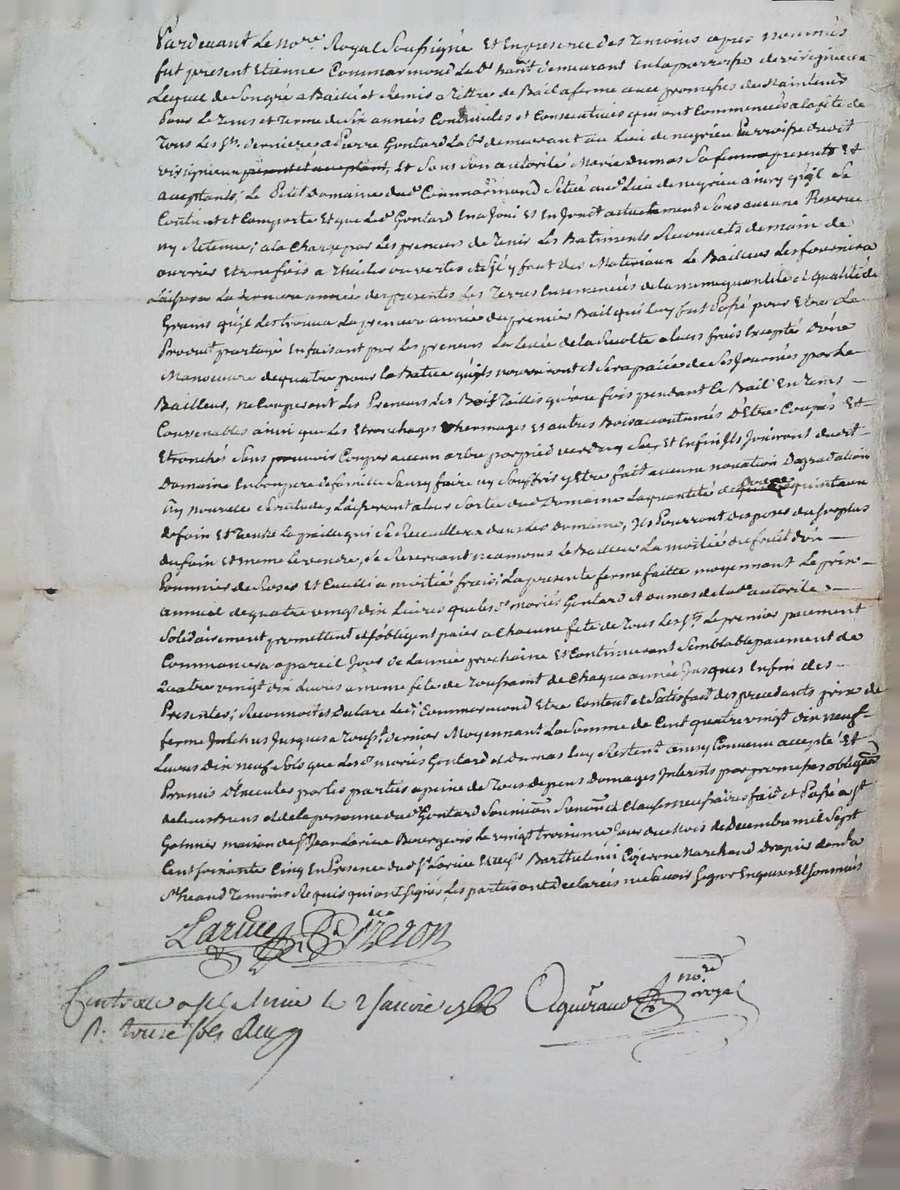 Pardevant Le no.re Royal Soussigné Et En presence des temoins apres nommés
fut present Etienne Commarmond Lab.r hab.t demeurant En La parroisse de virignieu
Lequel de Son gré a Baillé et Remis a tittre de Bail a ferme avec promesses de Maintenir
Pour Le tems et terme de Six années Continuelles et Consecutives qui ont Commencés a la fête de
Tous Les S.ts derniere a Pierre Gontard Lab.r demeurant au Lieu de negrieu Parroisse dudit
virignieu present et acceptant, Et Sous Son autorité Marie dumas Sa femme presents Et
acceptants, Le Petit Domaine dud. Commarmond Scitué aud. Lieu de negrieu ainsy qu'il Se
Contient et Comporte Et que Led. Gontard En a Joui Et En Jouit actuellement Sans aucune Reserve
ny Retenue; a la Charge par Les preneurs de tenir Les Batiments Recouverts de main de
ouvrier Et une fois a thuiles ouvertes et S'il y faut des Materiaux Le Bailleur Les fournira
Laissera La derniere année des presentes Les Terres Ensemencés de la meme quantité et qualité de
Grains qu'il Les trouva La premiere année du premier Bail qui Luy fut Passé pour Etre Le
Produit partagé En faisant par Les preneurs La Levée de la Recolte a leurs frais Excepté d'une
Manoeuvre de quatre pour la Batture qu'ils nourriront et Sera paiée de Ses Journées par Le
Bailleur, ne Couperont Les Preneurs Les Bois Taillis qu'une fois pendant Le Bail En tems
Convenables ainsi que Les Etronchages Ebermages Et autres Bois acoutumés D'Etre Coupés Et
Etronchés Sans pouvoir Couper aucun arbre par pied verd ny Sec, Et Enfin Ils Jouiront dudit
Domaine En bon pere de famille Sans y faire ny Souffrir y Etre fait aucune novation Degradation
ny nouvelle Servitude, Laisseront a leur Sortie dud. Domaine La quantité de quinze quintaux
de foin Et Toute La paille qui Se Recueillera dans Led. domaine, Ils Pourront disposer du Surplus
du foin Et meme Le vendre, Se Reservant neanmoins Le Bailleur La moitié du fruit d'un
Pommier de Roses Et Cueilli a moitié frais; La presente ferme faitte moyennant Le prix
annuel de quatre vingt dix Livres que Les d. mariés Gontard Et dumas de lad. autorité
Solidairement promettent et S'obligent paier a Chacune fête de Tous Les S.ts Le premier paiement
Commancera a pareil Jour de L'année prochaine Et Continueront Semblable paiement de
Quatre vingt dix Livres a meme fête de Toussaint de Chaque année Jusques En fin des
Presentes; Reconnoit et Declare Led. Commarmond Etre Content et Satisfait des precedants prix de
ferme Jusques a Touss.t dernier Moyennant La Somme de Cent quatre vingt dix neuf
Livres Dix neuf Sols que Les d. mariés Gontard et dumas Luy Restent ainsy Convenu accepté Et
Promis D'Executer par Les parties a peine de Tous depens Domages Interets par promesses obligaõn
de leurs biens et de la personne dud. Gontard Soumissoñ Renonoñ Et Clauses necessaires fait et Passé a S.t
Galmier maison de S.r Jean Larive Bourgeois Le vingt troisieme Jour du Mois de Decembre mil Sept
Cent Soixante Cinq En Presence dud. S.r Larive Et de S.r Barthelemi Pizeron Marchand drapier dud.
S.t heand Temoins Requis qui ont Signés Les parties ont declarés ne Scavoir Signer Enquises Et Sommés
Larive B. Pizeron
Controllé a S.t Galmier le 2 Janvier 1766
R. treize sols
Aguiraud no.re royal